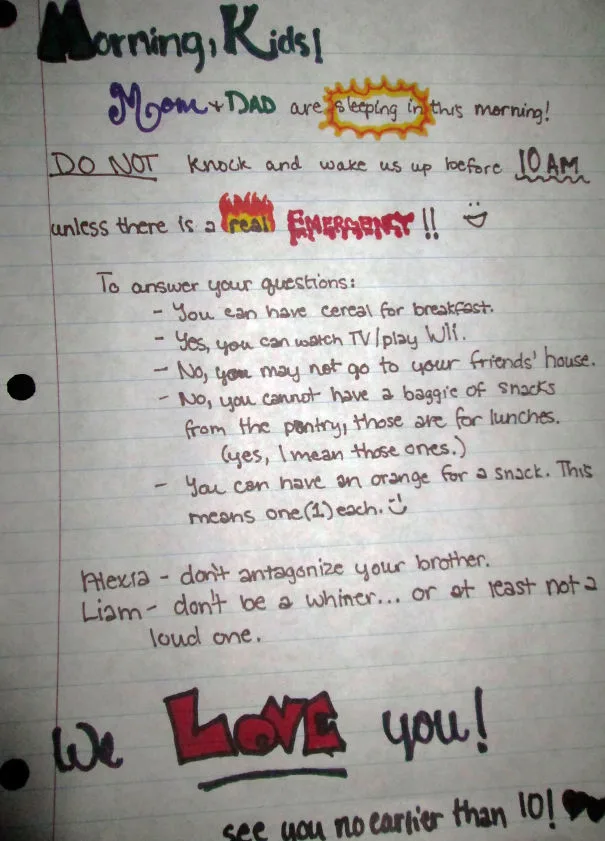 Morning, Kids!
Mom + DAD are sleeping in this morning!
DO NOT knock and wake us up before 10 AM
unless there is a real EMERGENCY!! :)
To answer your questions:
- You can have cereal for breakfast.
- Yes, you can watch TV/play WII.
- No, you may not go to your friends' house.
- No, you cannot have a baggie of snacks
from the pantry, those are for lunches.
(yes, I mean those ones.)
- You can have an orange for a snack. This
means one (1) each. :)
Alexia - don't antagonize your brother.
Liam - don't be a whiner... or at least not a
loud one.
We LOVE you!
see you no earlier than 10! ♥♥